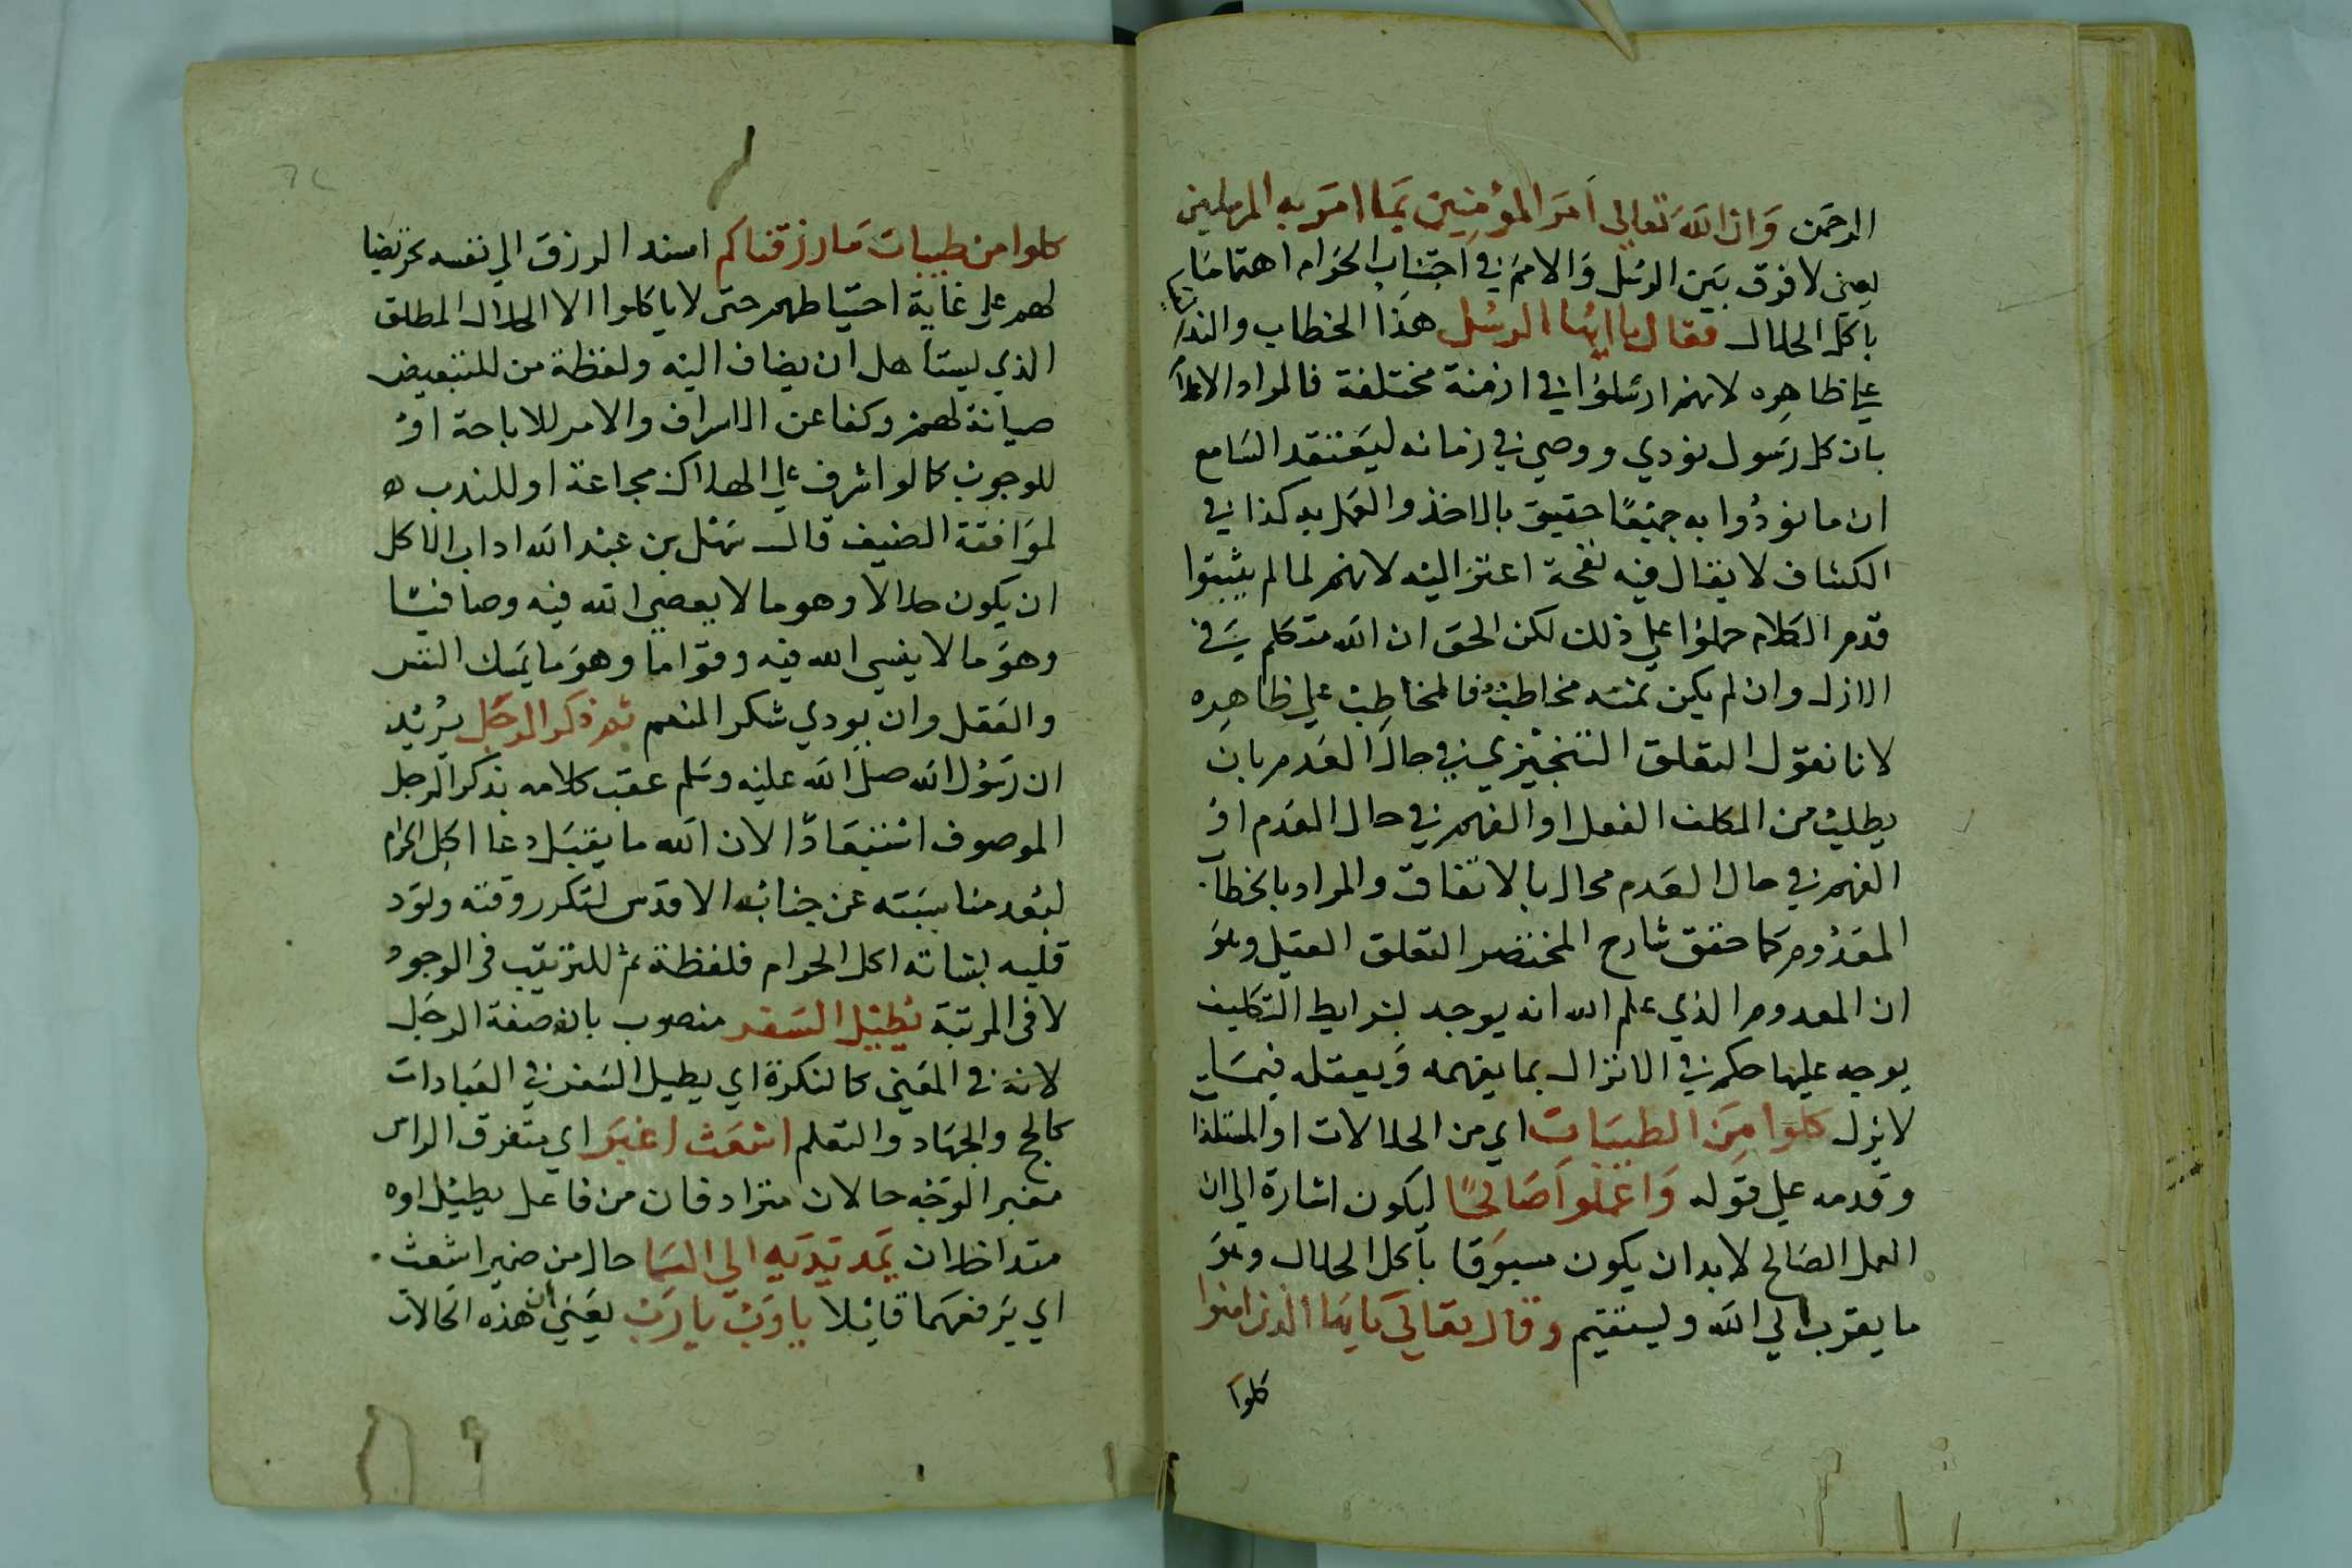 الرحمن وَان الله تعالى اَمَر المؤمِنِين بمَا امَر به المرسلين
يعني لا فرق بَين الرسُل وَالامم في اجتناب الحَرام اهتمامًا
بأكل الحلال فقال يا ايها الرسُل هذا الخطاب والندا
على ظاهِره لانهم ارسَلوا في ازمنة مختلفة فالمراد الاعلام
بان كل رَسول نودي ووصي في زمانه ليَعتقد السَامع
ان ما نودُوا به جميعًا حقيق بالاخذ والعَمل به كذا في
الكشاف لا يقال فيه نفحة اعتزاليه لانهم لما لم يثبتوا
قدم الكلام حملوا على ذلك لكن الحق ان الله متكلم في
الازل وان لم يكن ثمّه مخاطبٌ فالمخاطبُ على ظاهِره
لانا نقول التعلق التنجيزي في حال العَدم بان
يطلبُ من المكلف الفعل او الفهم في حال العَدم اوْ
الفهم في حال العَدم محال بالاتفاق والمراد بالخطاب
المعَدُوم كما حقق شارح المختصر التعلق العقلي وهوَ
ان المعدوم الذي علم الله انه يوجد بشرايط التكليف
يوجه عليها حكم في الانزال بما يفهمه وَيعقله فيمَا
لا يزل كلوا مِنَ الطيبَات اي من الحلالات او المتلذات
وقدمه على قوله وَاعمَلوا صَالحًا ليكون اشارة الى ان
العمل الصَالح لابد ان يكون مسبوَقا بأكل الحلال وهوَ
ما يقرب الى الله وليستقيم وقال تعَالى يا ايهَا الذين امنوا
كلوا
كلوا من طيبات مَا رزقناكم اسند الرزق الى نفسه تحريضا
لهم على غاية احتياطهم حتى لا ياكلوا الا الحلال المطلق
الذي ليستاهل ان يضاف اليه ولفظة من للتبعيض
صيانة لهم وكفا عن الاسراف والامر للاباحة اوْ
للوجوب كما لو اشرف على الهلاك مجاعة او للندب
لموَافقة الضيف قال سَهْل بن عبْد الله اداب الاكل
ان يكون حلالا وهو ما لا يعصى الله فيه وصافيًا
وهوَ ما لا ينسى الله فيه وقوَاما وهوَ ما يمَسك النفس
والعَقل وان يودي شكر المنعم ثم ذكر الرجُل يُريْد
ان رَسُول الله صلى الله عليه وسَلم عقب كلامه بذكر الرجل
الموصوف استبعَادًا لان الله ما يقبَل دعا اكل الحرام
لبُعد مناسَبَته عن جنابه الاقدس لتكرر وقته وتوَد
قلبه بشانه اكل الحرام فلفظة ثمّ للترتيب في الوجود
لا في المرتبَة يُطيْل السَفر منصوب بانه صفة الرجَل
لانه في المعَنى كالنكرة اي يطيل السَفر في العبَادات
كالحج والجهَاد والتعلم اشعَث اغبَر اي متفرق الراس
مغبر الوَجْه حالان مترادفان من فاعل يطيْل او
متداخلان يمَد يَديَه الى السَما حال من ضمير اشعث
اي يَرفعهمَا قائلا يا رَبّ يا رَبّ يعَني ان هذه الحالات